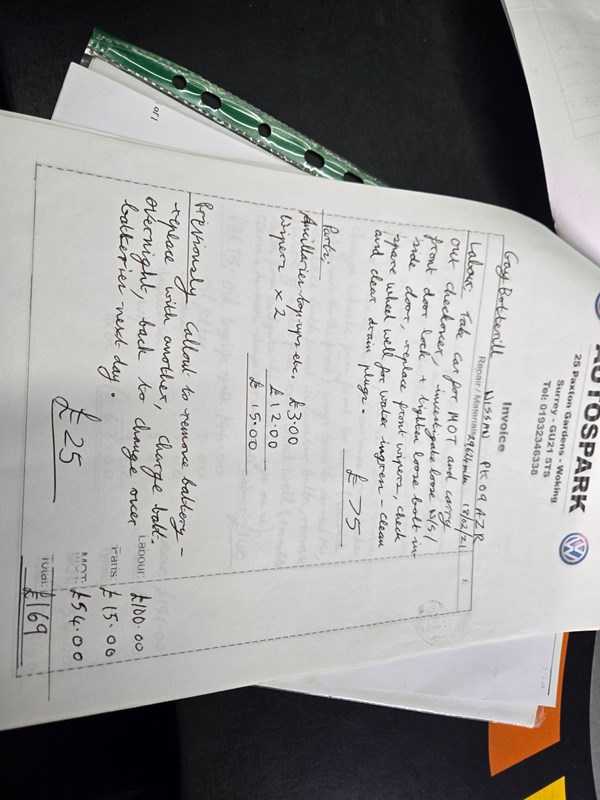 AUTOSPARK
25 Paxton Gardens - Woking
Surrey - GU21 5TS
Tel: 01932346338
Invoice
Gay Botterill NISSAN PK09 AZR
Repair / Material 29614 mls 18/02/21 £
Labour: Take car for MOT and carry
out checkover, investigate loose N/S/
front door lock + tighten loose bolt in
side door, replace front wipers, check
spare wheel well for water ingress - clean
and clear drain plugs.
£75
Parts:
Ancillaries top-ups etc. £3.00
Wipers x 2 £12.00
£15.00
Previously callout to remove battery -
replace with another, charge batt
overnight, back to change over
batteries next day.
£25
Labour: £100.00
Parts: £15.00
MOT: £54.00
Total: £169